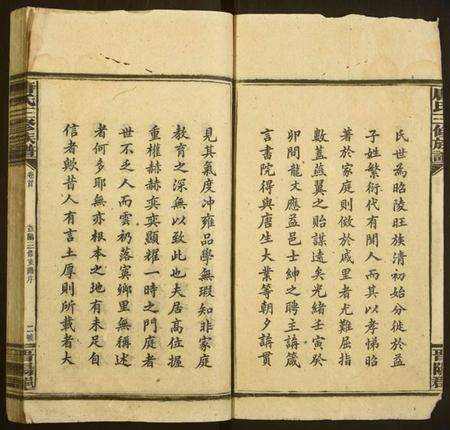 氏世為昭陵旺族清初始分徙於益
子姓繁衍代有聞人而其以孝悌昭
著於家庭則倣於戚里者尤難屈指
數蓋燕翼之貽謀遠矣光緒壬寅癸
卯間龍文應益邑士紳之聘主講箴
言書院得與唐生大業等朝夕講貫
見其氣度冲雍品學無瑕知非家庭
教育之深無以致此也夫居高位握
重權赫赫奕奕顯耀一時之門庭者
世不乏人而雲礽落寞鄉里無稱述
者何多耶無亦根本之地有未足自
信者歟昔人有言土厚則所載者大
氏三修族譜
卷首
三修族譜序
二
晉陽郡